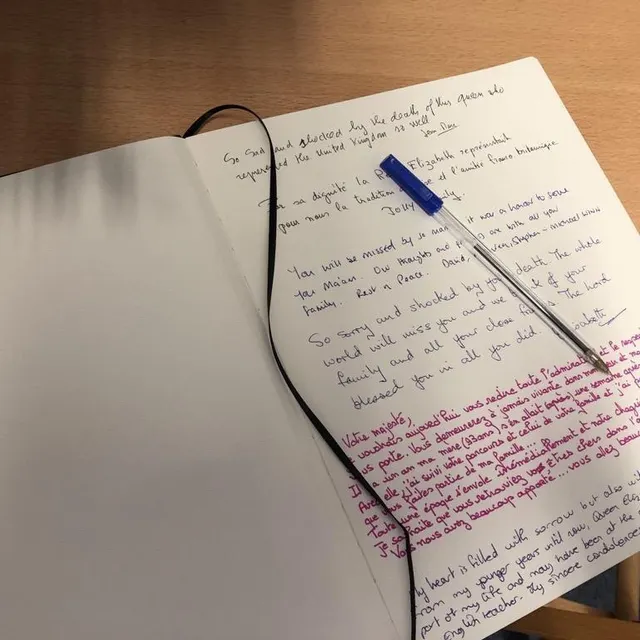 So Sad and shocked by the death of this queen who
represented the United Kingdom so well.
Par sa dignité la Elizabeth représentait
pour nous la tradition et l'amitié franco britannique.
You will be missed by so it was a honor to serve
You Ma'am. Our thoughts and are with all your
family. Rest in Peace. David, Stephen - Michael
So sorry and shocked by your death. The whole
world will miss you and we of your
family and all your close The Lord
blessed you in all you did.
Votre majesté,
aujourd'hui vous redire toute l'admiration et le respect
vous porte. Vous demeurerez à jamais vivante dans
Il y a un an ma mère (93 ans), s'en allait une semaine
Avec elle j'ai suivi votre parcours et celui de votre famille et j'ai
que vous faites partie de ma famille.
Toute une époque s'envole irrémédiablement et notre
Je souhaite que vous retrouviez vos êtres chers dans
Vous nous avez beaucoup apporté.. vous allez
My heart is filled with sorrow but also with
From my younger years until now, Queen
part of my life and may have been at the
English teacher. My sincere condolences